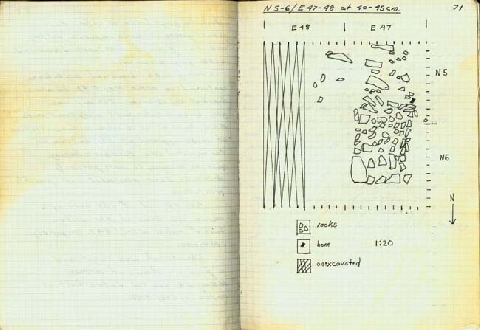 N5-6/E47-48 at 40-45cm
71
E48 E47
N5
N6
N
rocks
bone 1:20
unexcavated